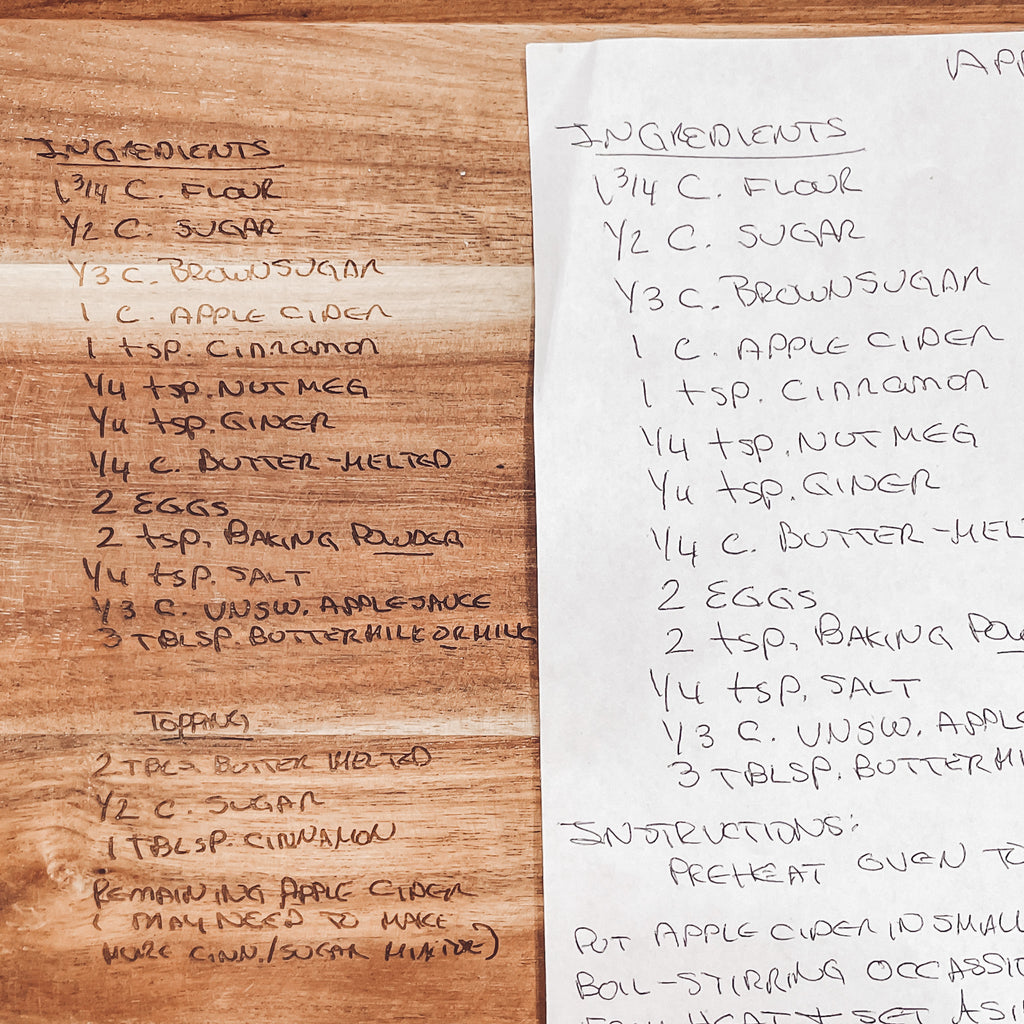 INGREDIENTS
1 3/4 C. FLOUR
1/2 C. SUGAR
1/3 C. BROWN SUGAR
1 C. APPLE CIDER
1 tsp. Cinnamon
1/4 tsp. NUTMEG
1/4 tsp. GINER
1/4 C. BUTTER-MELTED
2 EGGS
2 tsp. BAKING POWDER
1/4 tsp. SALT
1/3 C. UNSW. APPLESAUCE
3 TBLSP. BUTTERMILK OR MILK
TOPPING
2 TBLS BUTTER MELTED
1/2 C. SUGAR
1 TBLSP. CINNAMON
REMAINING APPLE CIDER
( MAY NEED TO MAKE
MORE CINN./SUGAR MIXTURE)
APP
INGREDIENTS
1 3/4 C. FLOUR
1/2 C. SUGAR
1/3 C. BROWN SUGAR
1 C. APPLE CIDER
1 tsp. Cinnamon
1/4 tsp. NUTMEG
1/4 tsp. GINER
1/4 C. BUTTER-MEL
2 EGGS
2 tsp. BAKING POW
1/4 tsp. SALT
1/3 C. UNSW. APPLE
3 TBLSP. BUTTERMI
INSTRUCTIONS:
PREHEAT OVEN TO
PUT APPLE CIDER IN SMALL
BOIL-STIRRING OCCASSIO
FROM HEAT & SET ASI